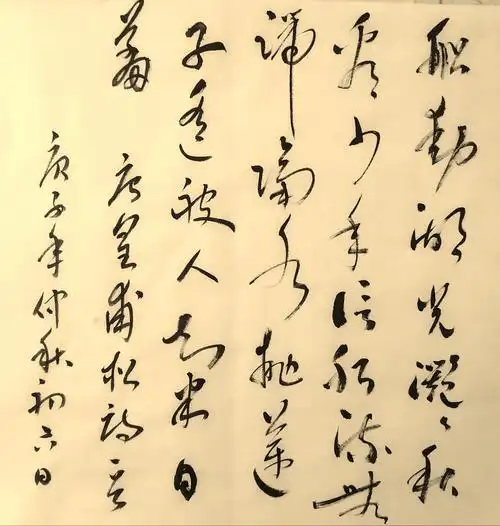 船動湖光灔〻秋
看少年信船流無
端隔水抛蓮
子遥被人知半日
羞 唐皇甫松詩
庚子年仲秋初六日